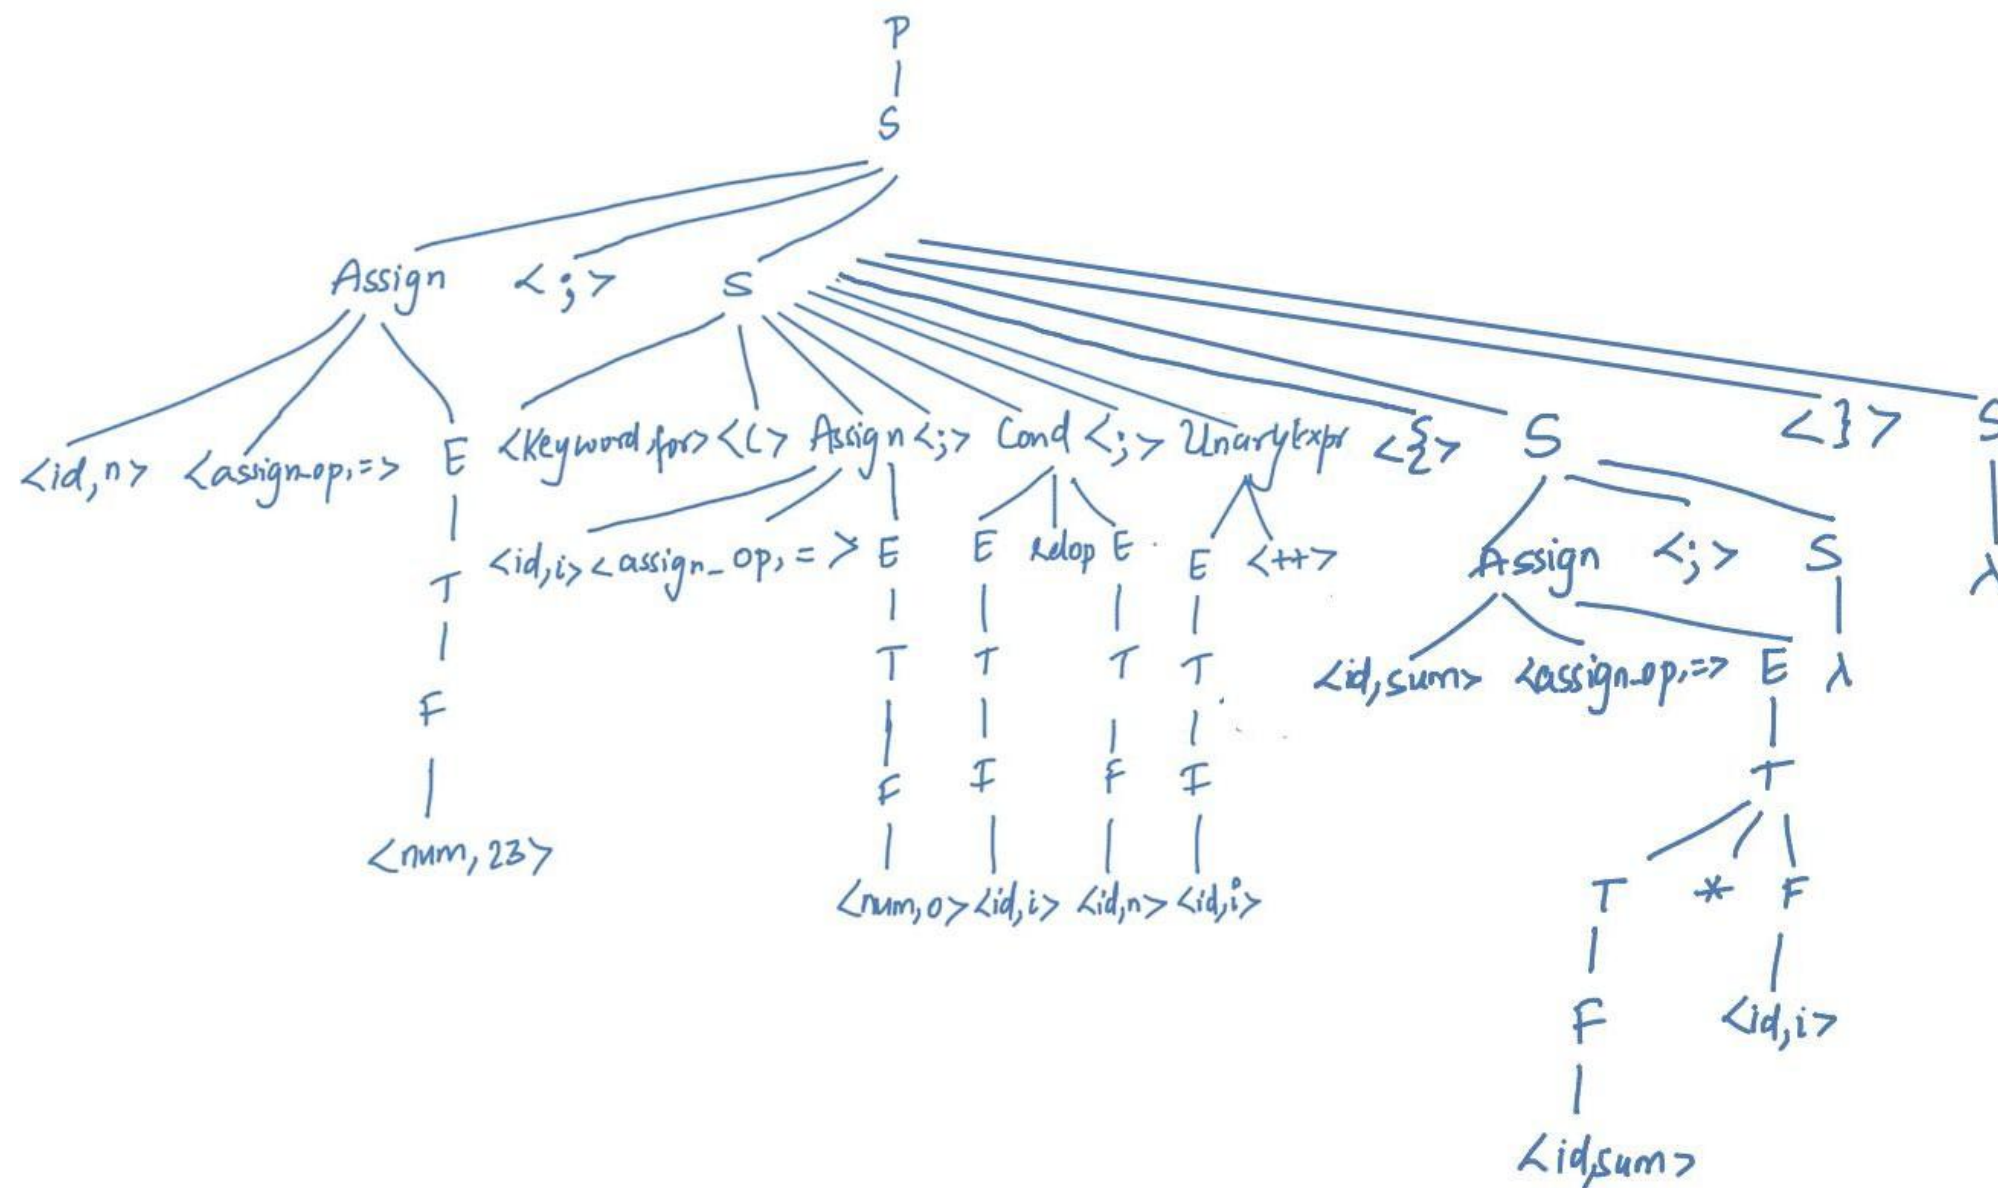 P
S
Assign <;> S
<id,n> <assign_op,=> E <keyword,for> <(> Assign <;> Cond <;> UnaryExpr <{> S <}> S
<id,i> <assign_op,=> E E Relop E E <++> Assign <;> S λ
T T T T T <id,sum> <assign_op,=> E λ
F F F F F T
<num,23> <num,0> <id,i> <id,n> <id,i> T * F
F <id,i>
<id,sum>